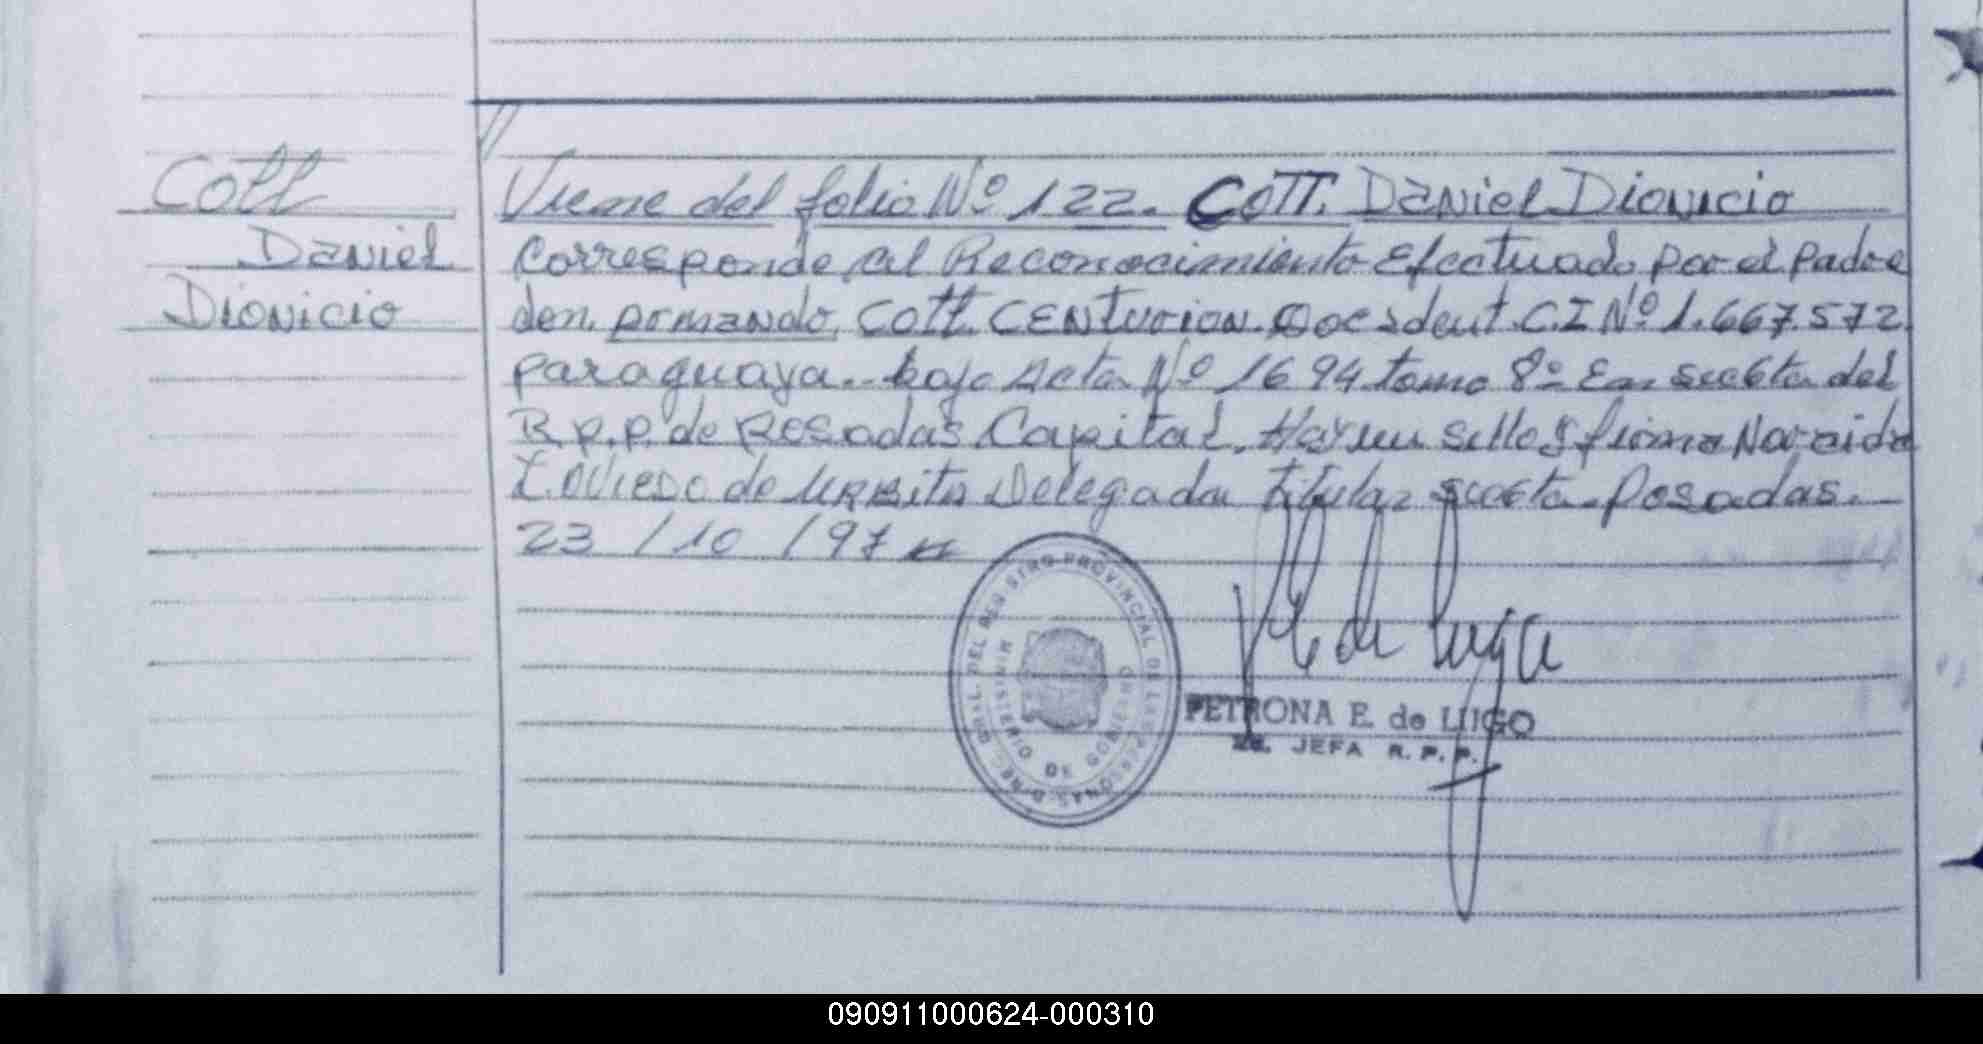 Cott
Daniel
Dionicio
Viene del folio Nº 122. COTT. Daniel Dionicio
Corresponde al Reconocimiento Efectuado por el padre
don, Armando, Cott. CENTurion. Doc ident. C.I Nº 1.667.572
paraguaya. bajo Acta Nº 1694 tomo 8º En secta del
R.P.P. de Posadas Capital. Hay un sello y firma
I. Oviedo de Delegada titular secta Posadas.
23 / 10 / 97
DIREC. GRAL. DEL REGISTRO PROVINCIAL DE LAS PERSONAS
MINISTERIO DE GOBIERNO
PETRONA E. de LUGO
JEFA R. P. P.
090911000624-000310